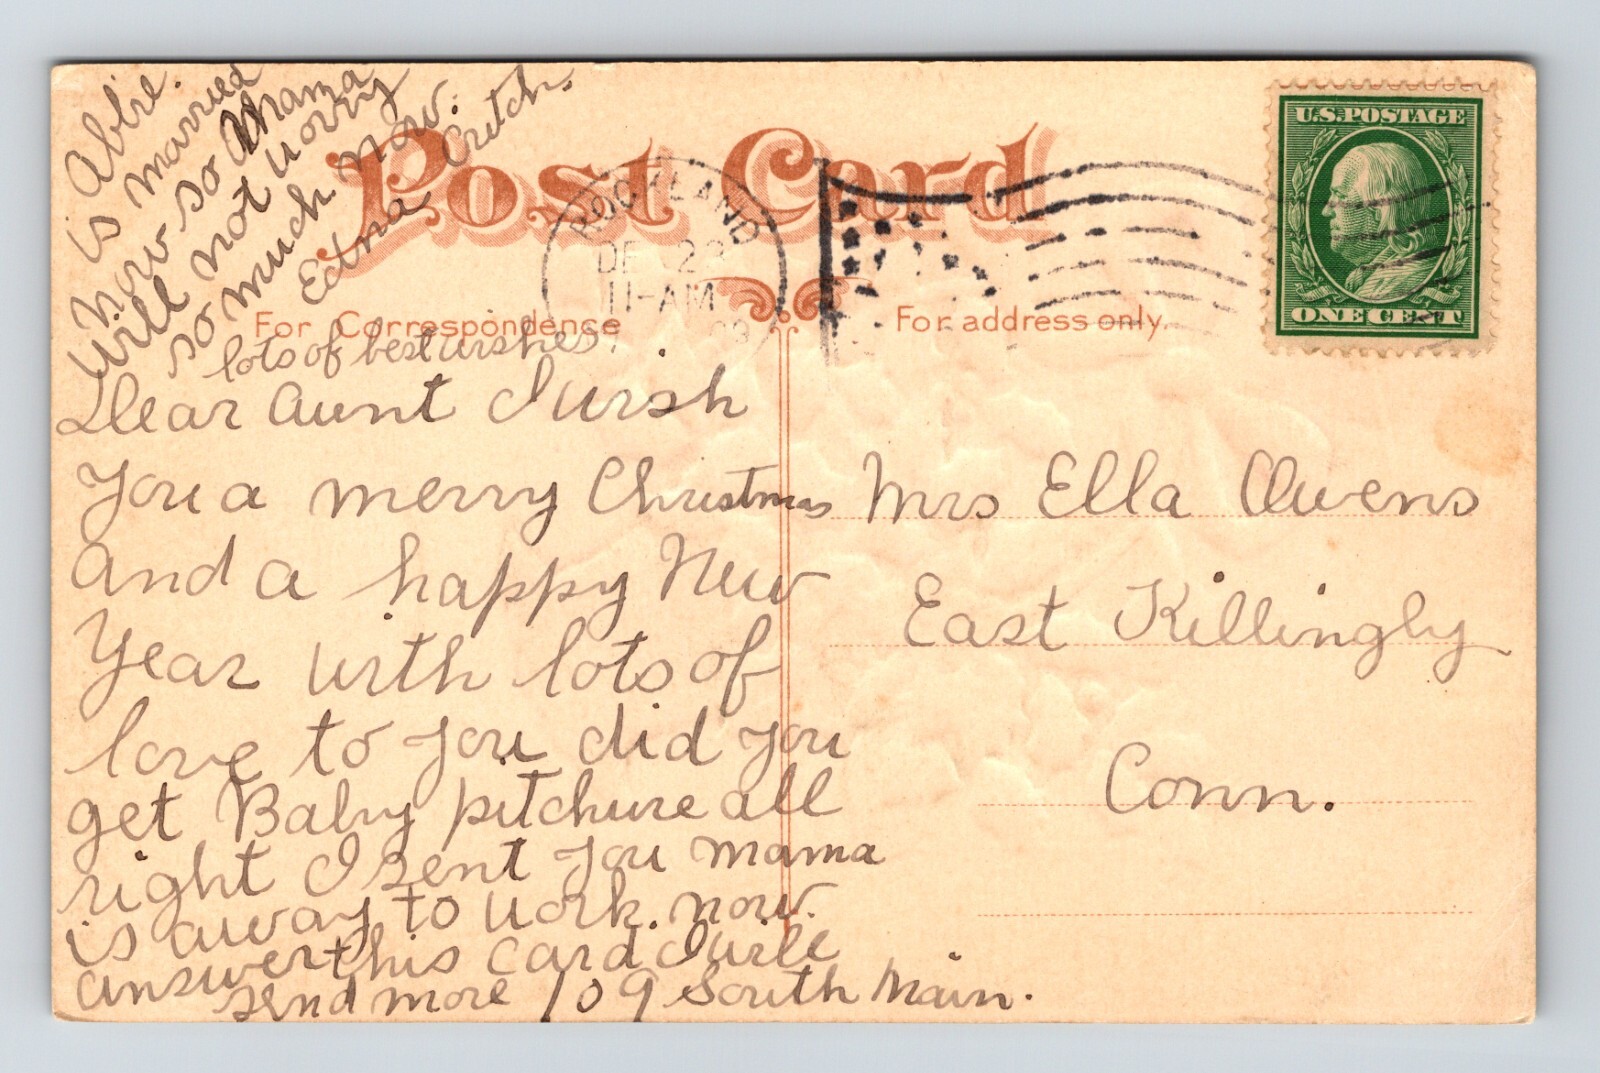 Abbie.
is married
now so Mama
will not worry
so much now.
Edna Crutch.
lots of best wishes.
Post Card
For Correspondence
For address only.
ROCKLAND
DE 22
11-AM
U.S. POSTAGE
ONE CENT
Dear Aunt I wish
You a merry Christmas
and a happy New
Year with lots of
love to you did you
get Baby pitchure all
right I sent you mama
is away to work. now.
answer this card I will
send more 109 South Main.
Mrs Ella Owens
East Killingly
Conn.